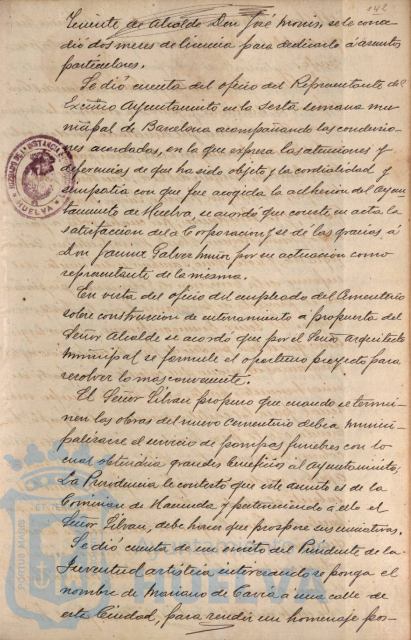 142
Teniente de Alcalde Don José Moris, se le conce-
dió dos meses de licencia para dedicarlo á asuntos
particulares.
Se dió cuenta del oficio del Representante del
Excmo Ayuntamiento en la Sexta semana mu-
nicipal de Barcelona acompañando las conclusio-
nes acordadas, en la que expresa las atenciones y
deferencias de que ha sido objeto y la cordialidad y
simpatia con que fue acogida la adhesion del Ayun-
tamiento de Huelva, se acordo que conste en acta la
satisfacción de la Corporacion y se dé las gracias á
Don Jaime Galvez Muñoz por su actuacion como
representante de la misma.
En vista del oficio del empleado del Cementerio
sobre construccion de enterramiento a propuesta del
Señor Alcalde se acordo que por el Señor arquitecto
Municipal se formule el oportuno proyecto para
resolver lo mas conveniente.
El Señor Silvan propuso que cuando se termi-
nen las obras del nuevo Cementerio debia munici-
palizarse el servicio de pompas funebres con lo
cual obtendria grandes beneficios el Ayuntamiento;
La Providencia le contestó que este asunto es de la
Comision de Hacienda y perteneciendo a ella el
Señor Silvan, debe hacer que prospere sus iniciativas.
Se dió cuenta de un escrito del Presidente de la
Juventud artistica interesando se ponga el
nombre de Mariano de Cavia a una calle de
esta Ciudad, para rendir un homenaje pos-
HUELVA
PORTUS MARIS
Ayuntamiento
HUELVA